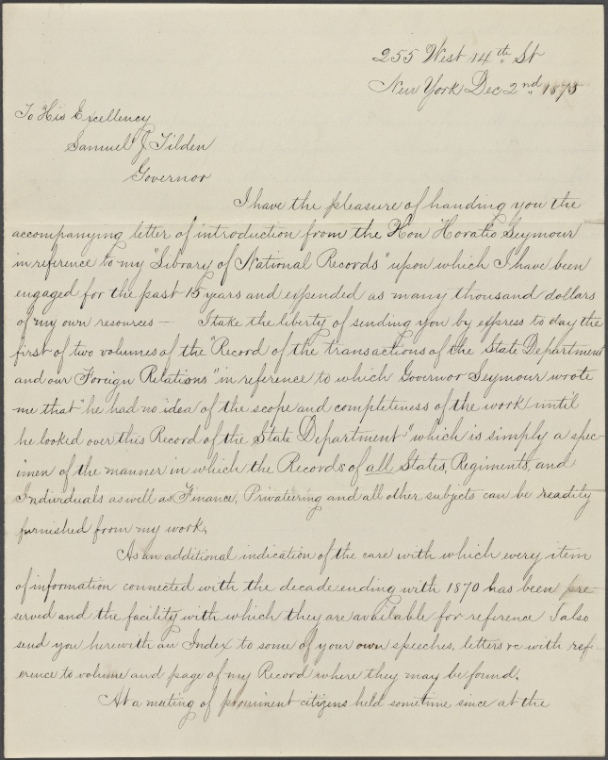 255 West 14th St
New York Dec 2nd 1875
To His Excellency
Samuel J Tilden
Governor
I have the pleasure of handing you the
accompanying letter of introduction from the Hon Horatio Seymour
in reference to my "Library of National Records" upon which I have been
engaged for the past 15 years and expended as many thousand dollars
of my own resources — I take the liberty of sending you by express to day the
first of two volumes of the "Record of the transactions of the State Department
and our Foreign Relations" in reference to which Governor Seymour wrote
me that "he had no idea of the scope and completeness of the work until
he looked over this Record of the State Department" which is simply a spec-
imen of the manner in which the Records of all States, Regiments, and
Individuals as well as Finance, Privateering and all other subjects can be readily
furnished from my work.
As an additional indication of the care with which every item
of information connected with the decade ending with 1870 has been pre-
served and the facility with which they are available for reference I also
send you herewith an Index to some of your own speeches, letters &c with ref-
erence to volume and page of my Record where they may be found.
At a meeting of prominent citizens held sometime since at the